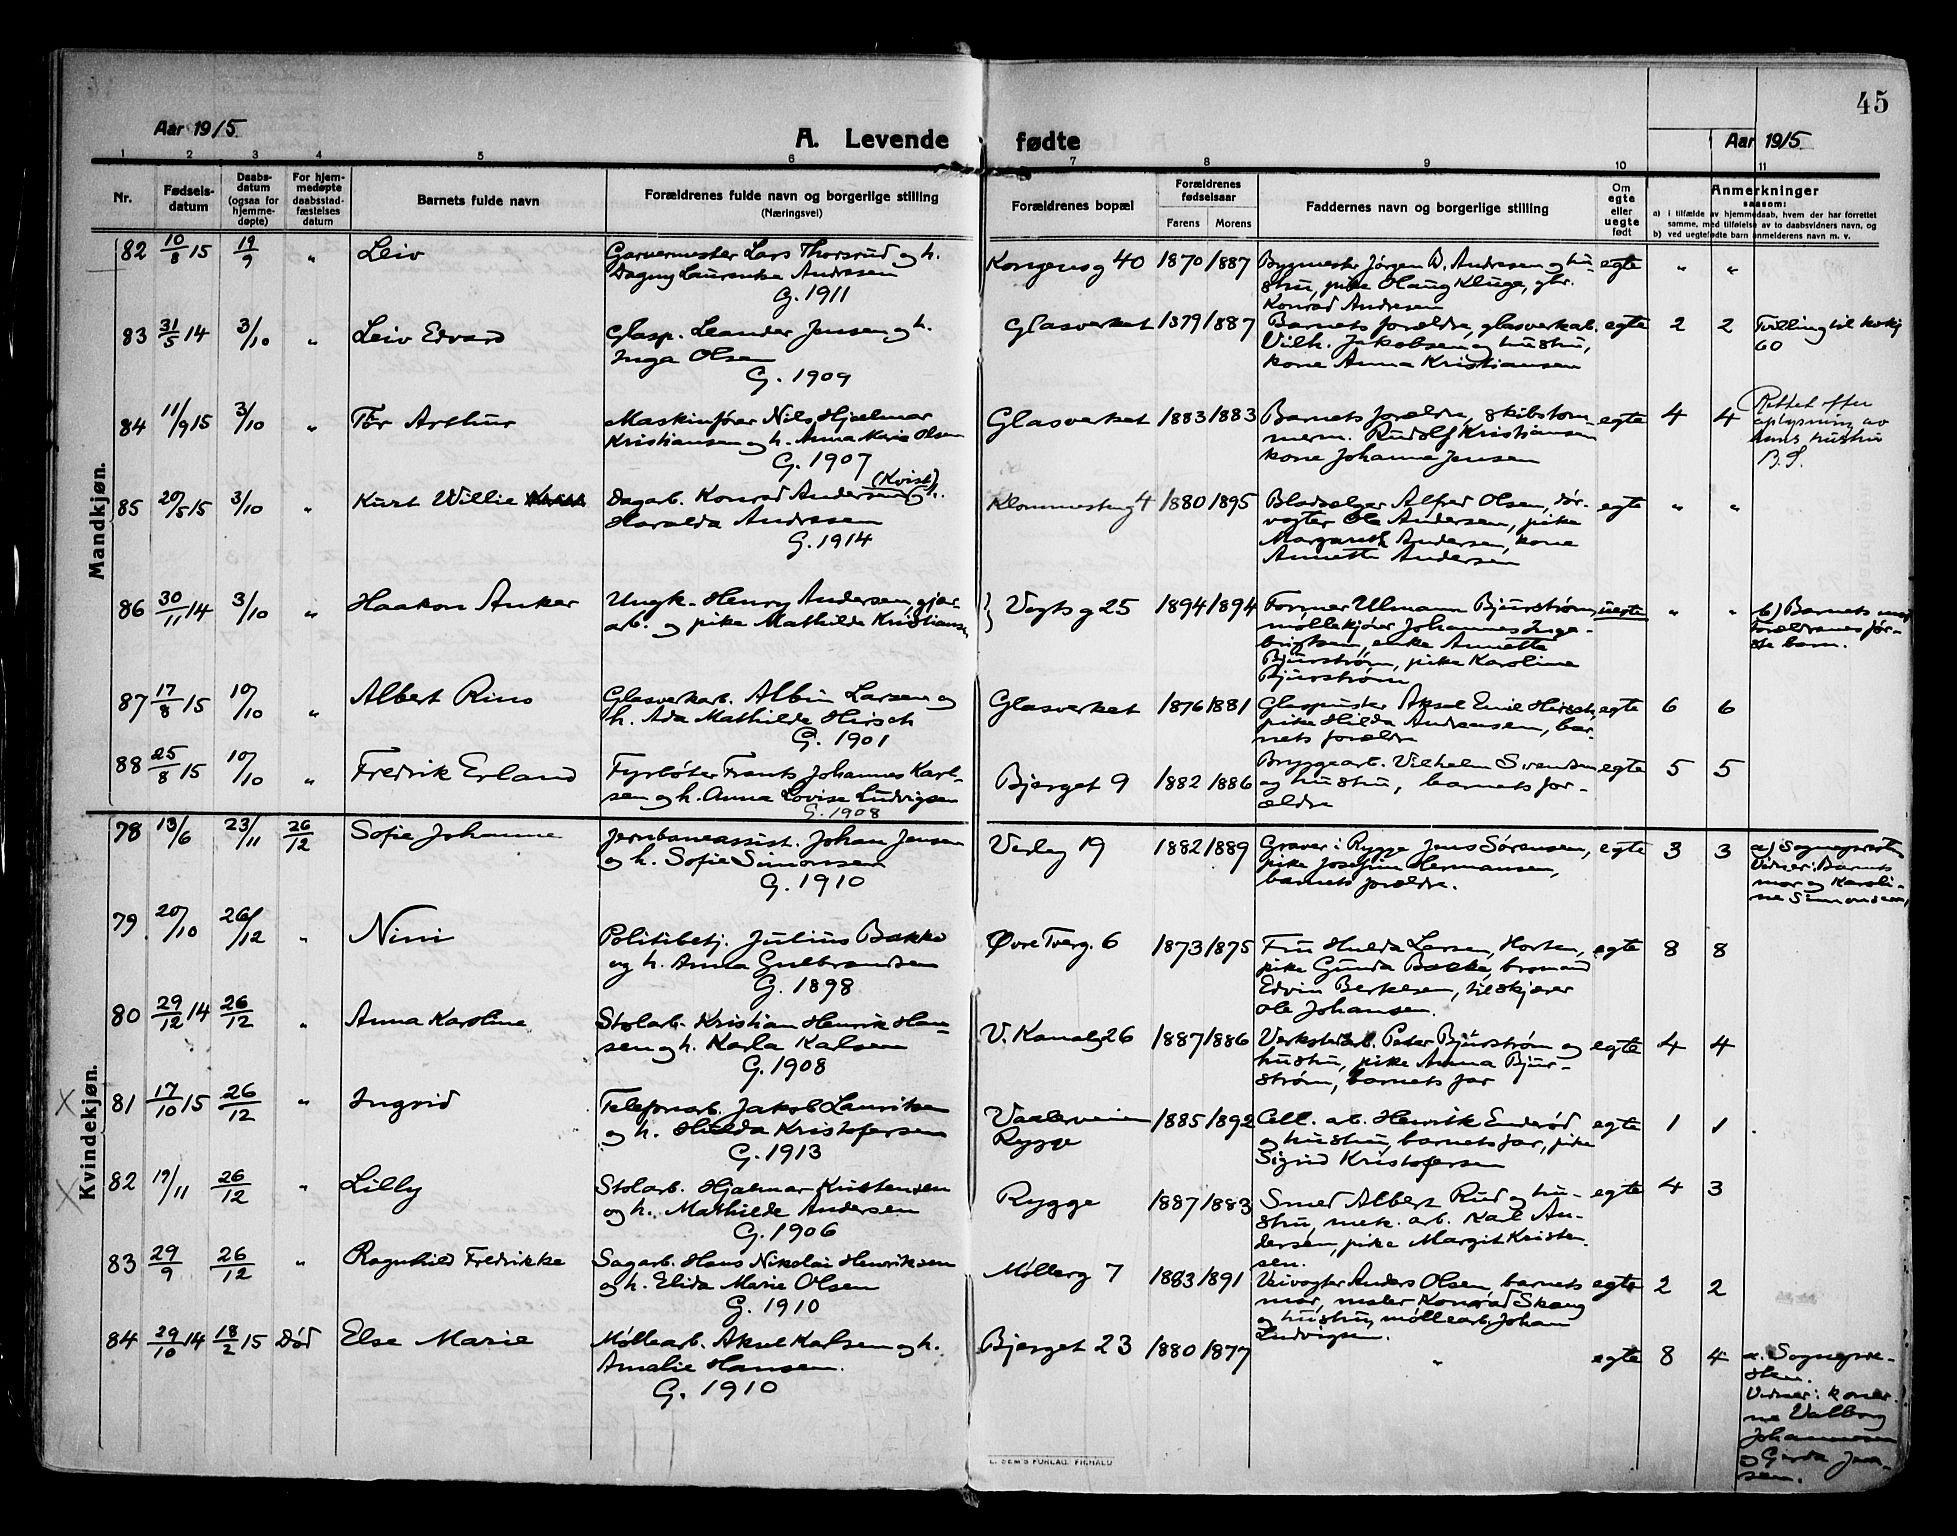 45
Aar 1915
A. Levende
fødte
Aar 1915
1 2 3 4 5 6 7 8 9 10 11
Nr.
Fødsels-
datum
Daabs-
datum
(ogsaa for
hjemme-
døpte)
For hjem-
medøpte
daabsstad-
fæstelses
datum
Barnets fulde navn
Forældrenes fulde navn og borgerlige stilling
(Næringsvei)
Forældrenes bopæl
Forældrenes
fødselsaar
Farens Morens
Faddernes navn og borgerlige stilling
Om
egte
eller
uegte
født
Anmerkninger
saasom:
a) i tilfælde av hjemmedaab, hvem der har forrettet
samme, med tilføielse av to daabsvidners navn, og
b) ved uegtefødte barn anmelderens navn m. v.
Mandkjøn.
82 10/8 15 19/9 " Leiv
Garvermester Lars Thorsrud og h.
Dagny Laurentze Andresen
G. 1911
Kongensg 40 1870 1887
Bygmester Jørgen D. Andresen og hu-
stru, pike Olaug Kluge, gbr.
Konrad Andresen
egte " "
83 31/5 14 3/10 " Leiv Edvard
Glasp. Leander Jensen og h.
Inga Olsen
G. 1909
Glasverket 1879 1887
Barnets forældre, glasverkab.
Vilh. Jakobsen og hustru,
kone Anna Kristiansen
egte 2 2
Tvilling til
60
84 11/9 15 3/10 " Tor Arthur
Maskinfører Nils Hjalmar
Kristiansen og h. Anna Marie Olsen
G. 1907
Glasverket 1883 1883
Barnets forældre, skibstøm-
merm. Rudolf Kristiansen
kone Johanne Jensen
egte 4 4
Rettet efter
oplysning av
hans hustru
B.S.
85 20/5 15 3/10 " Kurt Willie
Dagarb. Konrad Andersen (Kvist) og h.
Haralda Andresen
G. 1914
4 1880 1895
Bladsælger Alfred Olsen, dør-
vogter Ole Andersen, pike
Margareth Andersen, kone
Annette Andersen
egte " "
86 30/11 14 3/10 " Haakon Anker
Ungk. Henry Andersen, gjær-
arb. og pike Mathilde Kristiansen
Vogts g 25 1894 1894
Former Ulmann Bjurstrøm,
møllekjører Johannes Inge-
brigtsen, enke Annette
Bjurstrøm, pike Karoline
Bjurstrøm
uegte " "
b) Barnets mor
Forældrenes før-
ste barn.
87 17/8 15 10/10 " Albert Rino
Glasverkarb. Albin Larsen og
h. Ada Mathilde Hirsch
G. 1901
Glasverket 1876 1881
Glaspuster Aksel Emil Hirsch,
pike Hilda Andreasen, bar-
nets forældre
egte 6 6
88 25/8 15 10/10 " Fredrik Erland
Fyrbøter Frants Johannes Karl-
sen og h. Anna Lovise Ludvigsen
G. 1908
Bjerget 9 1882 1886
Bryggearb. Vilhelm Svendsen
og hustru, barnets for-
ældre
egte 5 5
Kvindekjøn.
78 13/6 23/11 26/12 Sofie Johanne
Jernbaneassist. Johan Jensen
og h. Sofie Simonsen
G. 1910
19 1882 1889
Graver i Rygge Jens Sørensen,
pike Josefine Hermansen,
barnets forældre.
egte 3 3
a) Sognepresten
Vidner: Barnets
mor og Karoli-
ne Simonsen,
79 20/10 26/12 " Nini
Politibetj. Julius Bakke
og h. Anna Gulbrandsen
G. 1898
Øvre Tverg. 6 1873 1875
Fru Hulda Larsen, Horten,
pike Gunda Bakke, bromand
Edvin Berkesen, tilskjærer
Ole Johansen.
egte 8 8
80 29/12 14 26/12 " Anna Karoline
Stolarb. Kristian Henrik Han-
sen og h. Karla Karlsen
G. 1908
V. Kanalg 26 1887 1886
Verkstedarb. Peter Bjurstrøm og
hustru, pike Anna Bjur-
strøm, barnets far
egte 4 4
X 81 17/10 15 26/12 " Ingrid
Telefonarb. Jakob Lauritsen
og h. Hilda Kristofersen
G. 1913
Vaalerveien
Rygge
1885 1892
Cell. arb. Henrik Enderød
og hustru, barnets far, pike
Sigrid Kristofersen
egte 1 1
X 82 19/11 26/12 " Lilly
Stolarb. Hjalmar Kristensen
og h. Mathilde Andersen
G. 1906
Rygge 1887 1883
Smed Albert Rud og hu-
stru, mek. arb. Karl An-
dersen, pike Margit Kristen-
sen.
egte 4 3
83 29/9 26/12 " Ragnhild Fredrikke
Sagarb. Hans Nikolai Henriksen
og h. Elida Marie Olsen
G. 1910
Mølleg 7 1883 1891
Veivogter Anders Olsen, barnets
mor, maler Konrad Skaug
og hustru, møllearb. Johan
Ludvigsen.
egte 2 2
84 29/10 14 18/2 15 Død Else Marie
Møllearb. Aksel Karlsen og h.
Amalie Hansen.
G. 1910
Bjerget 23 1880 1877
"
egte 8 4
a. Sognepre-
sten.
Vidner: koner-
ne Valborg
Johannesen
og Gerda Jen-
sen.